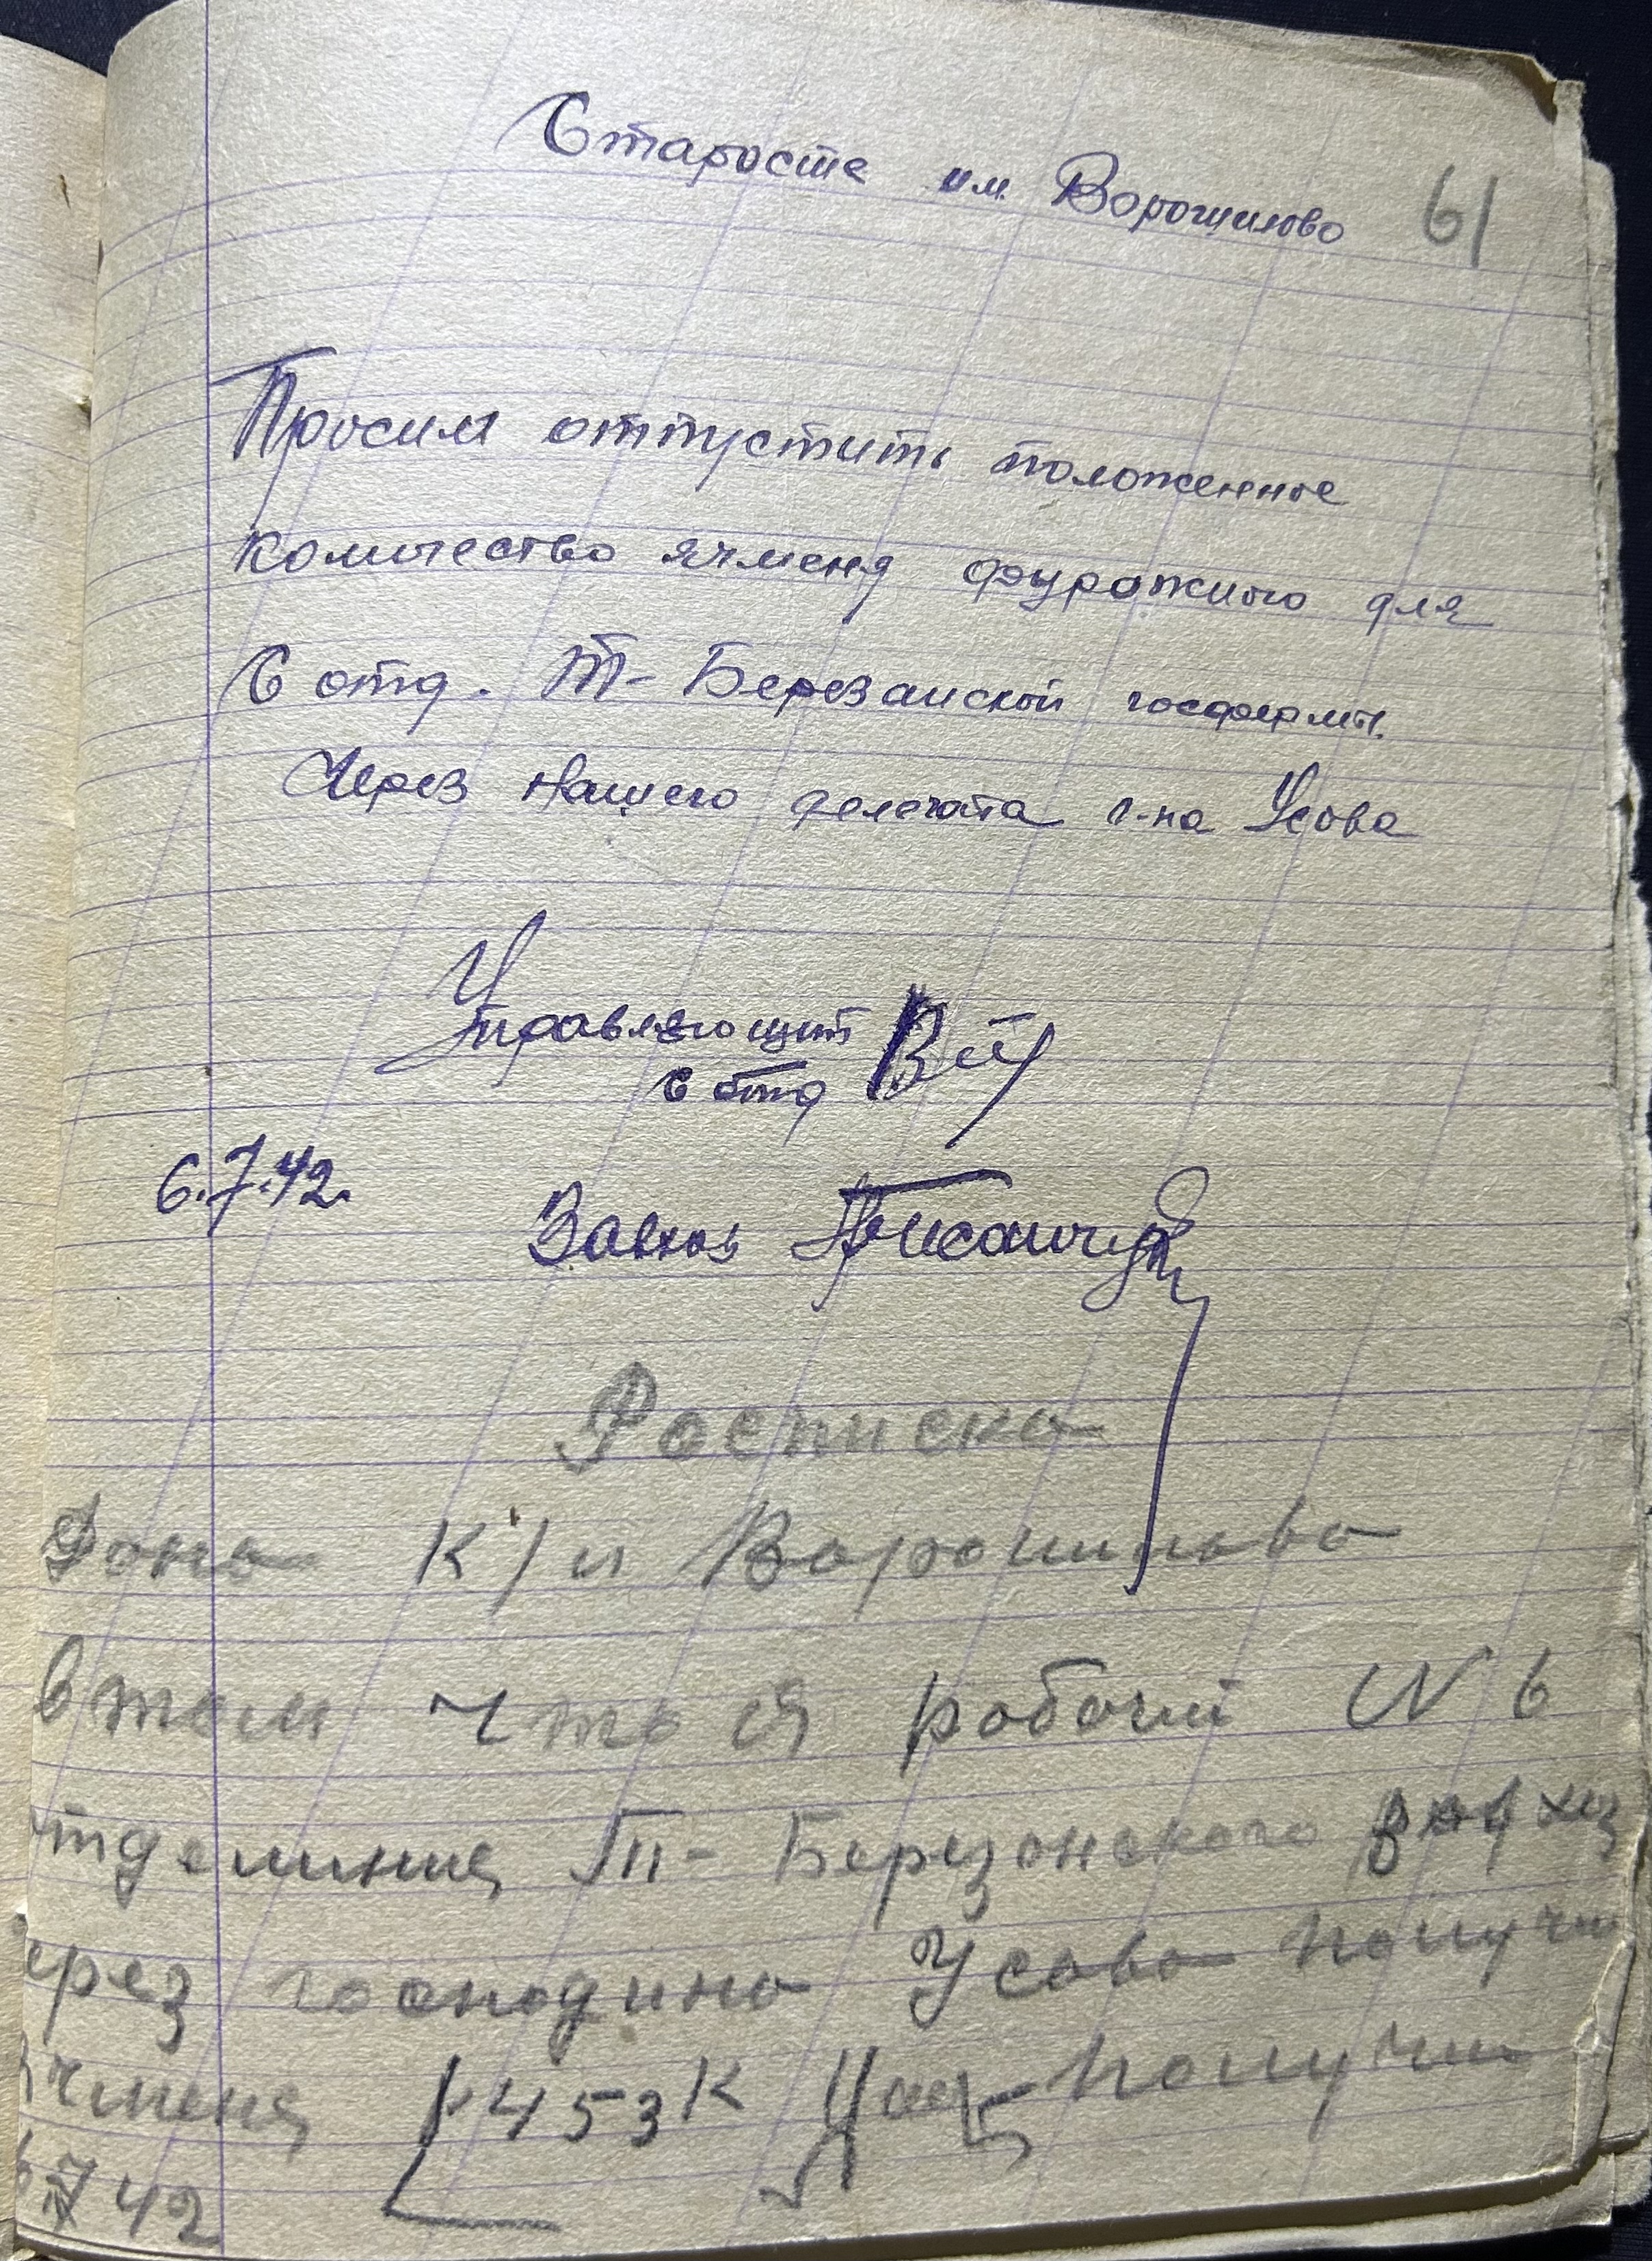 Старосте им. Ворошилово
61
Просим отпустить положенное
количество ячменя фуражного для
6 отд. Т- Березанской госфермы.
Через нашего делегата г-на Усова
Управляющий
6 отд
6.7.42.
Завхоз
Росписка
Дана К/и Ворошилова
В том что я робочий N 6
отделиния Т- Березонского
ерез господина Усова получи
ячменя 453 К получи
6 7 42